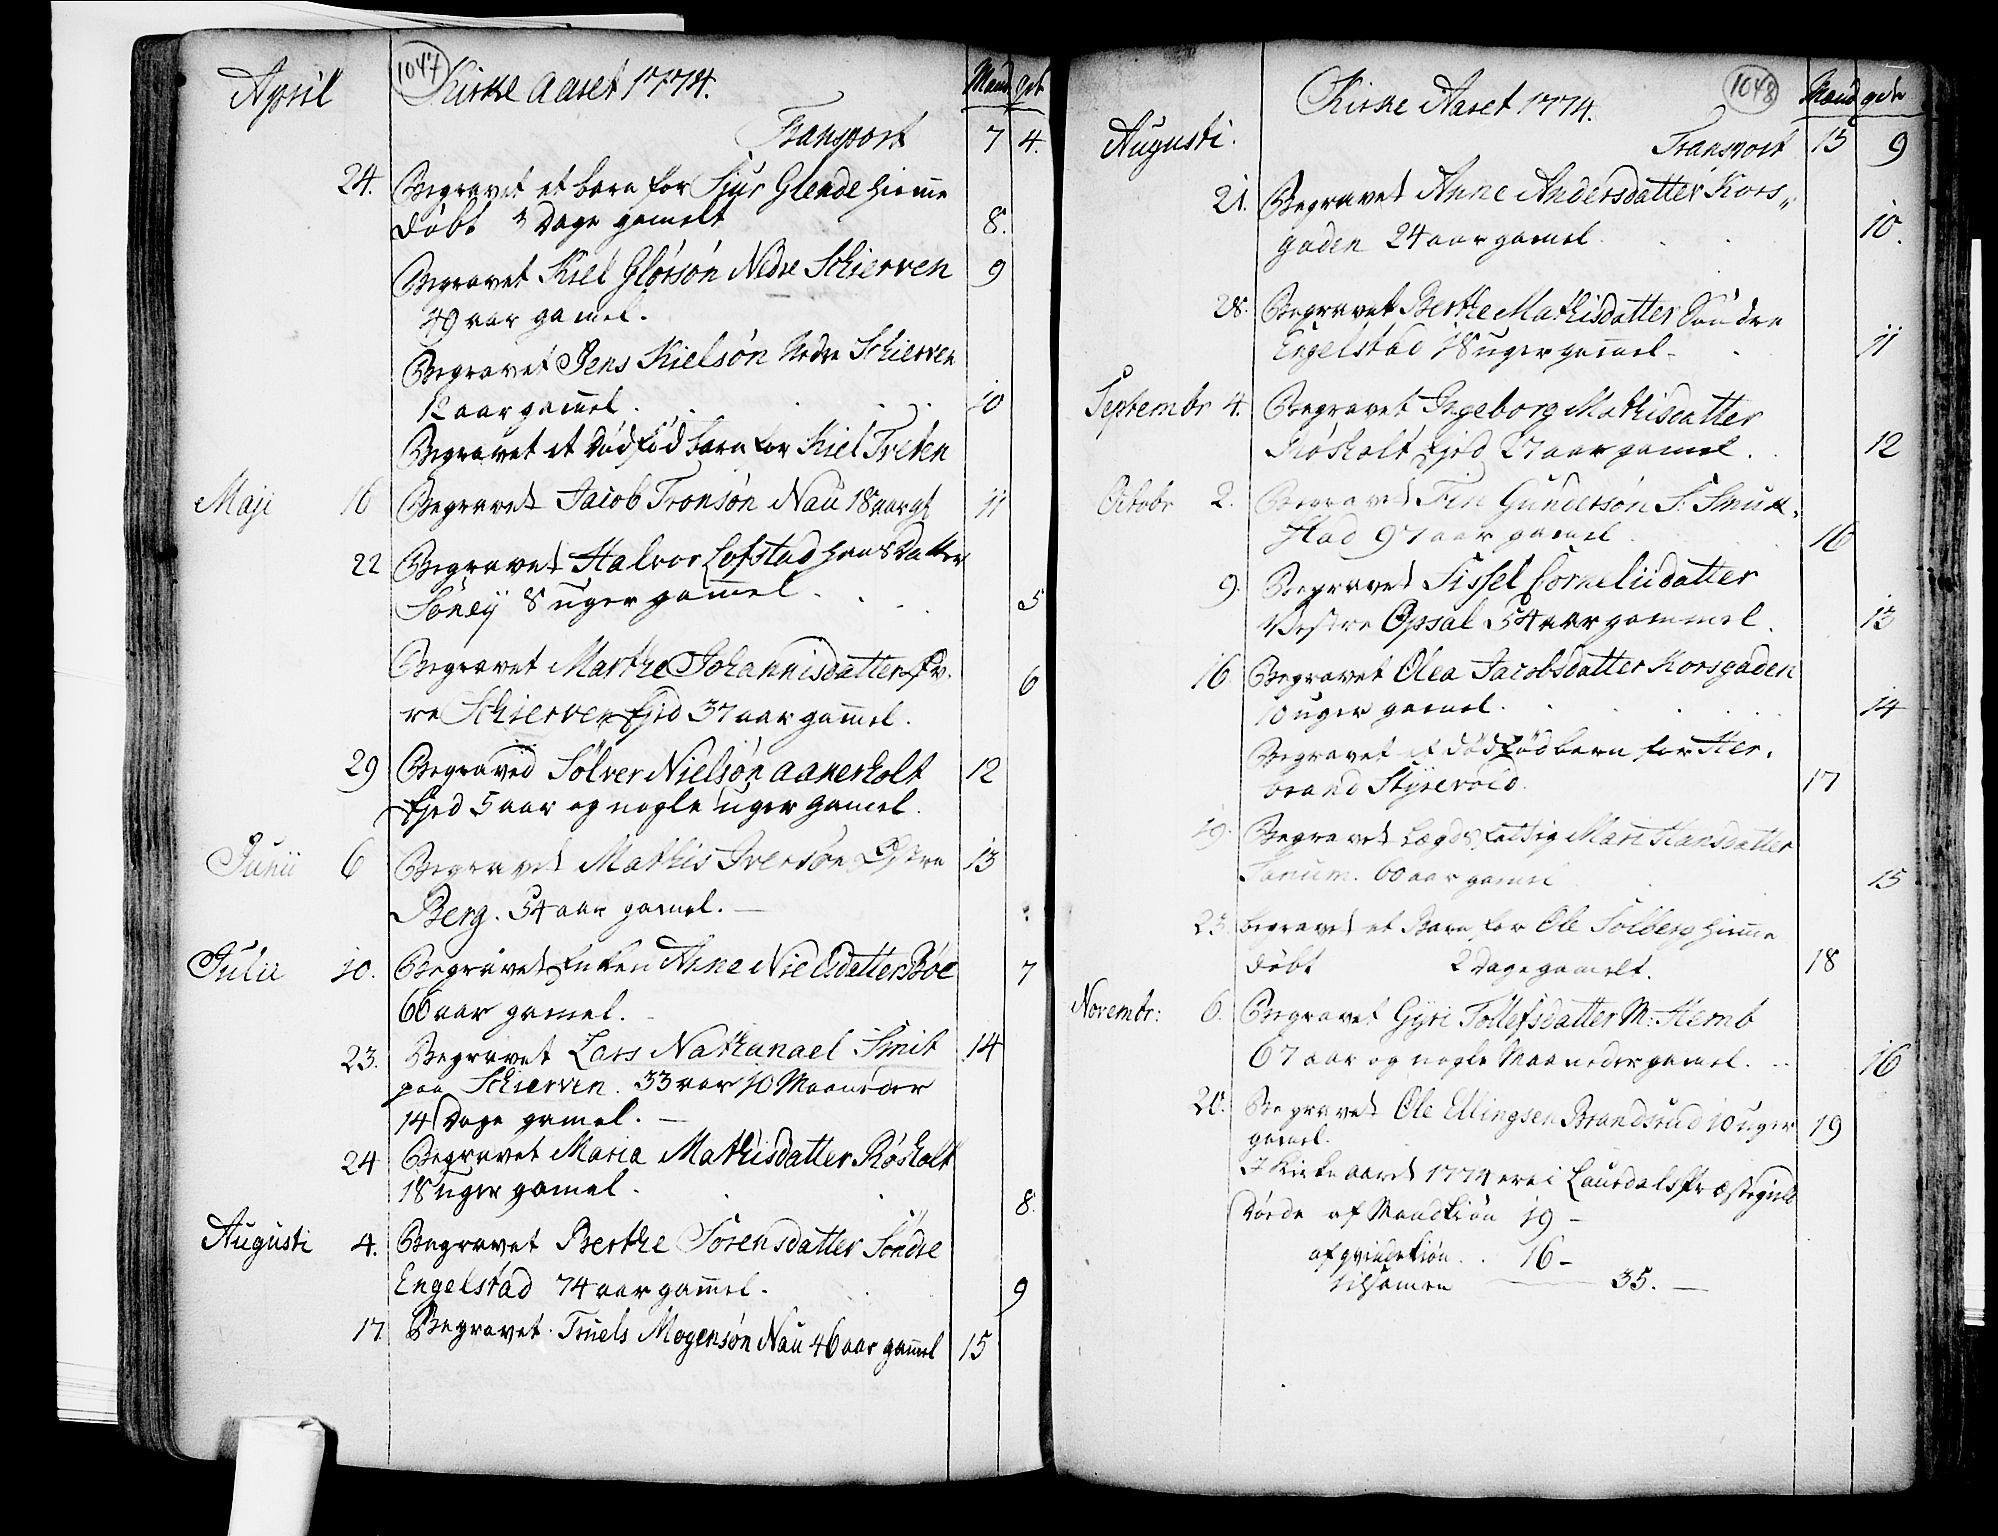 1047
April Kirke Aaret 1774. Mand qvk
Transport 7 4.
24. Begravet et barn for Siur Glende hiemme
døbt 3 Dage gamelt 8.
Begravet Kiel Glørsøn Nedre Schierven 9
49 aar gamel.
Begravet Jens Kielsøn Nedre Schierven
12 aar gamel. 10
Begravet et dødfød barn for Kiel Treten
Maji 16 Begravet Jacob Tronsøn Nau 18 aar gl 11
22 Begravet Halvor Lofstad hans Datter
8 uger gammel. 5
Begravet Marthe Johannisdatter Øv.
re Schierven Ejed 37 aar gammel. 6
29 Begraved Sølver Nielsøn Aanerholt 12
Ejed 5 aar og nogle uger gamel.
Junii 6 Begravet Mathis Iversøn Østre 13
Berg. 54 aar gamel. —
Julii 10. Begravet Enken Anne Nielsdatter Bøe 7
66 aar gamel.
23. Begravet Lars Nathanael Smit 14
paa Schierven. 33 aar 10 Maaneder
14 Dage gamel. —
24 Begravet Maria Mathisdatter Røsholt
18 uger gamel. 8.
Augusti 4. Begravet Berthe Sørensdatter Søndre
Engelstad 74 aar gamel. 9
17 Begravet Truels Mogensøn Nau 46 aar gamel 15
1048
Kirke Aaret 1774. Mand qvk
Augusti. Transport 15 9
21. Begravet Anne Andersdatter Kors„
gaden 24 aar gamel. 10.
28. Begravet Berthe Mathisdatter Søndre
Engelstad 18 uger gamel. 11
Septembr 4. Begravet Ingeborg Mathisdatter
Røsholt Ejed 27 aar gamel. 12
Octobr 2. Begravet Fin Gundersøn S. Smuk.
stad 97 aar gamel 16
9. Begravet Sissel Corneliidatter
Vestre Opsal 54 aar gammel. 13
16 Begravet Olea Jacobsdatter Korsgaden
10 uger gamel. 14
Begravet et dødfød barn for Her.
brand Styrevold. 17
19. Begravet Lægds Fattig Mari Hansdatter
Sanum. 60 aar gamel 15
23. begravet et Barn for Ole Solberg hiemme
døbt 2 Dage gamelt. 18
Novembr: 6. Begravet Gyri Tollefsdatter M: Hemb
67 aar og nogle Maaneder gamel. 16
20. Begravet Ole Ellingsen Brandsrud 10 uger 19
gamel.
I Kirke aaret 1774 ere i Laurdals Præstegield
Døede af Mandkiøn 19 —
af qvindekiøn . . 16 —
tilsamen — 35. —